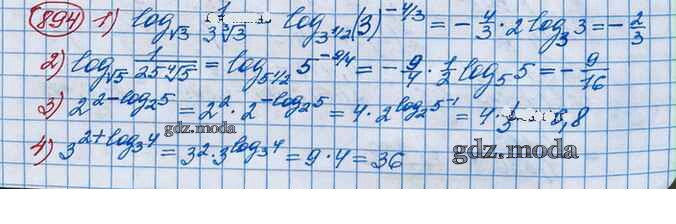 894 1) log_√3 1/(3∛3) log_3^1/2 (3)^-4/3 = -4/3 · 2 log_3 3 = -2/3
2) log_√5 1/(25 ∜5) = log_5^1/2 5^-9/4 = -9/4 · 1/2 log_5 5 = -9/16
3) 2^(2-log_2 5) = 2^2 · 2^(-log_2 5) = 4 · 2^(log_2 5^-1) = 4 · 1/5 8,8
gdz.moda
4) 3^(2+log_3 4) = 3^2 · 3^(log_3 4) = 9 · 4 = 36
gdz.moda